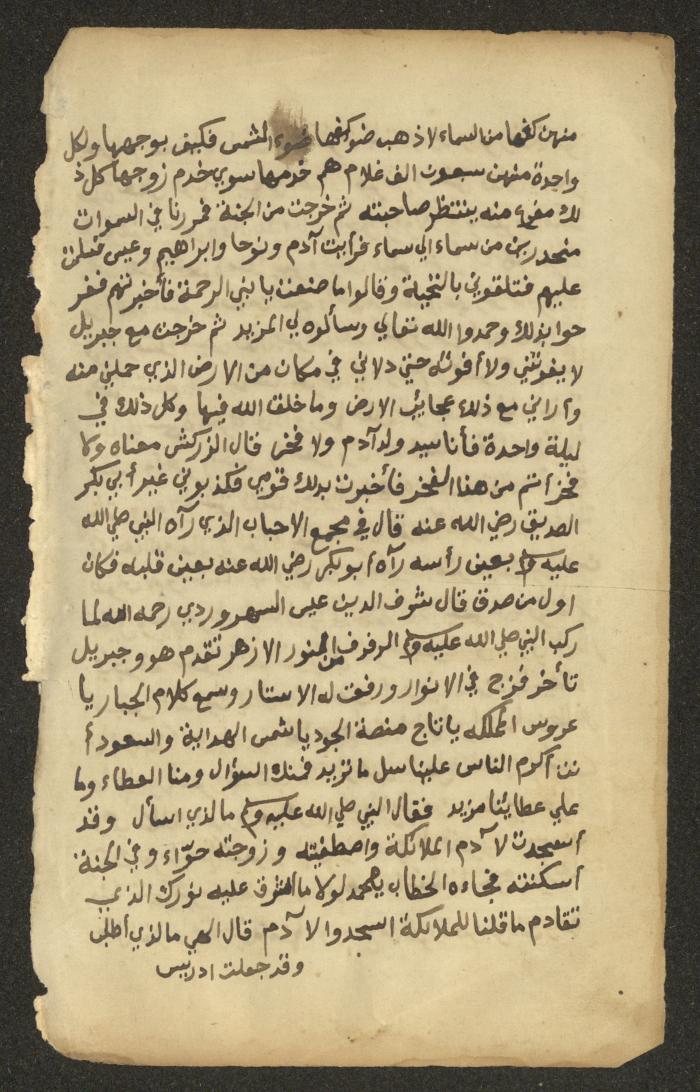 منهن كفها من السماء لاذهب ضوكفها ضوء الشمس فكيف بوجهها ولكل
واحدة منهن سبعون الف غلام هم خدمها سوي خدم زوجها كل ذ
لك مفروغ منه ينتظر صاحبته ثم خرجت من الجنة فمررنا في السموات
منحدرين من سماء الي سماء فرأيت آدم ونوحا وابراهيم وعيسى فسلمت
عليهم فتلقوني بالتحية وقالوا ما صنعت يا نبي الرحمة فأخبرتهم ففر
حوا بذلك وحمدوا الله تعالي وسألوه لي المزيد ثم خرجت مع جبريل
لا يفوتني ولا أفوته حتي دلاني في مكان من الارض الذي حملني منه
وأراني مع ذلك عجايب الارض وما خلق الله فيها وكل ذلك في
ليلة واحدة فأنا سيد ولد آدم ولا فخر قال الزركش معناه ولا
فخر أتم من هذا الفخر فأخبرت بذلك قومي فكذبوني غير أبي بكر
الصديق رضي الله عنه قال في مجمع الاحباب الذي رآه النبي صلي الله
عليه وم بعين رأسه رآه أبو بكر رضي الله عنه بعين قلبه فكان
اول من صدق قال شرف الدين عيسى السهروردي رحمه الله لما
ركب النبي صلي الله عليه وم الرفرف من النور الازهر تقدم هو وجبريل
تأخر فزج في الانوار ورفعت له الاستار وسمع كلام الجبار يا
عروس المملكه يا تاج منصة الجود يا شمس الهداية والسعود أ
نت اكرم الناس علينا سل ما تريد فمنك السؤال ومنا العطاء وما
علي عطايئنا مزيد فقال النبي صلي الله عليه وم مالذي اسأل وقد
أسجدت لآدم الملائكة واصطفيته وزوجته حوّاء وفي الجنة
أسكنته فجاءه الخطاب يا محمد لولا ما اشرق عليه نورك الذي
تقادم ما قلنا للملائكة اسجدوا لآدم قال الهي مالذي أطلب
وقد جعلت ادريس